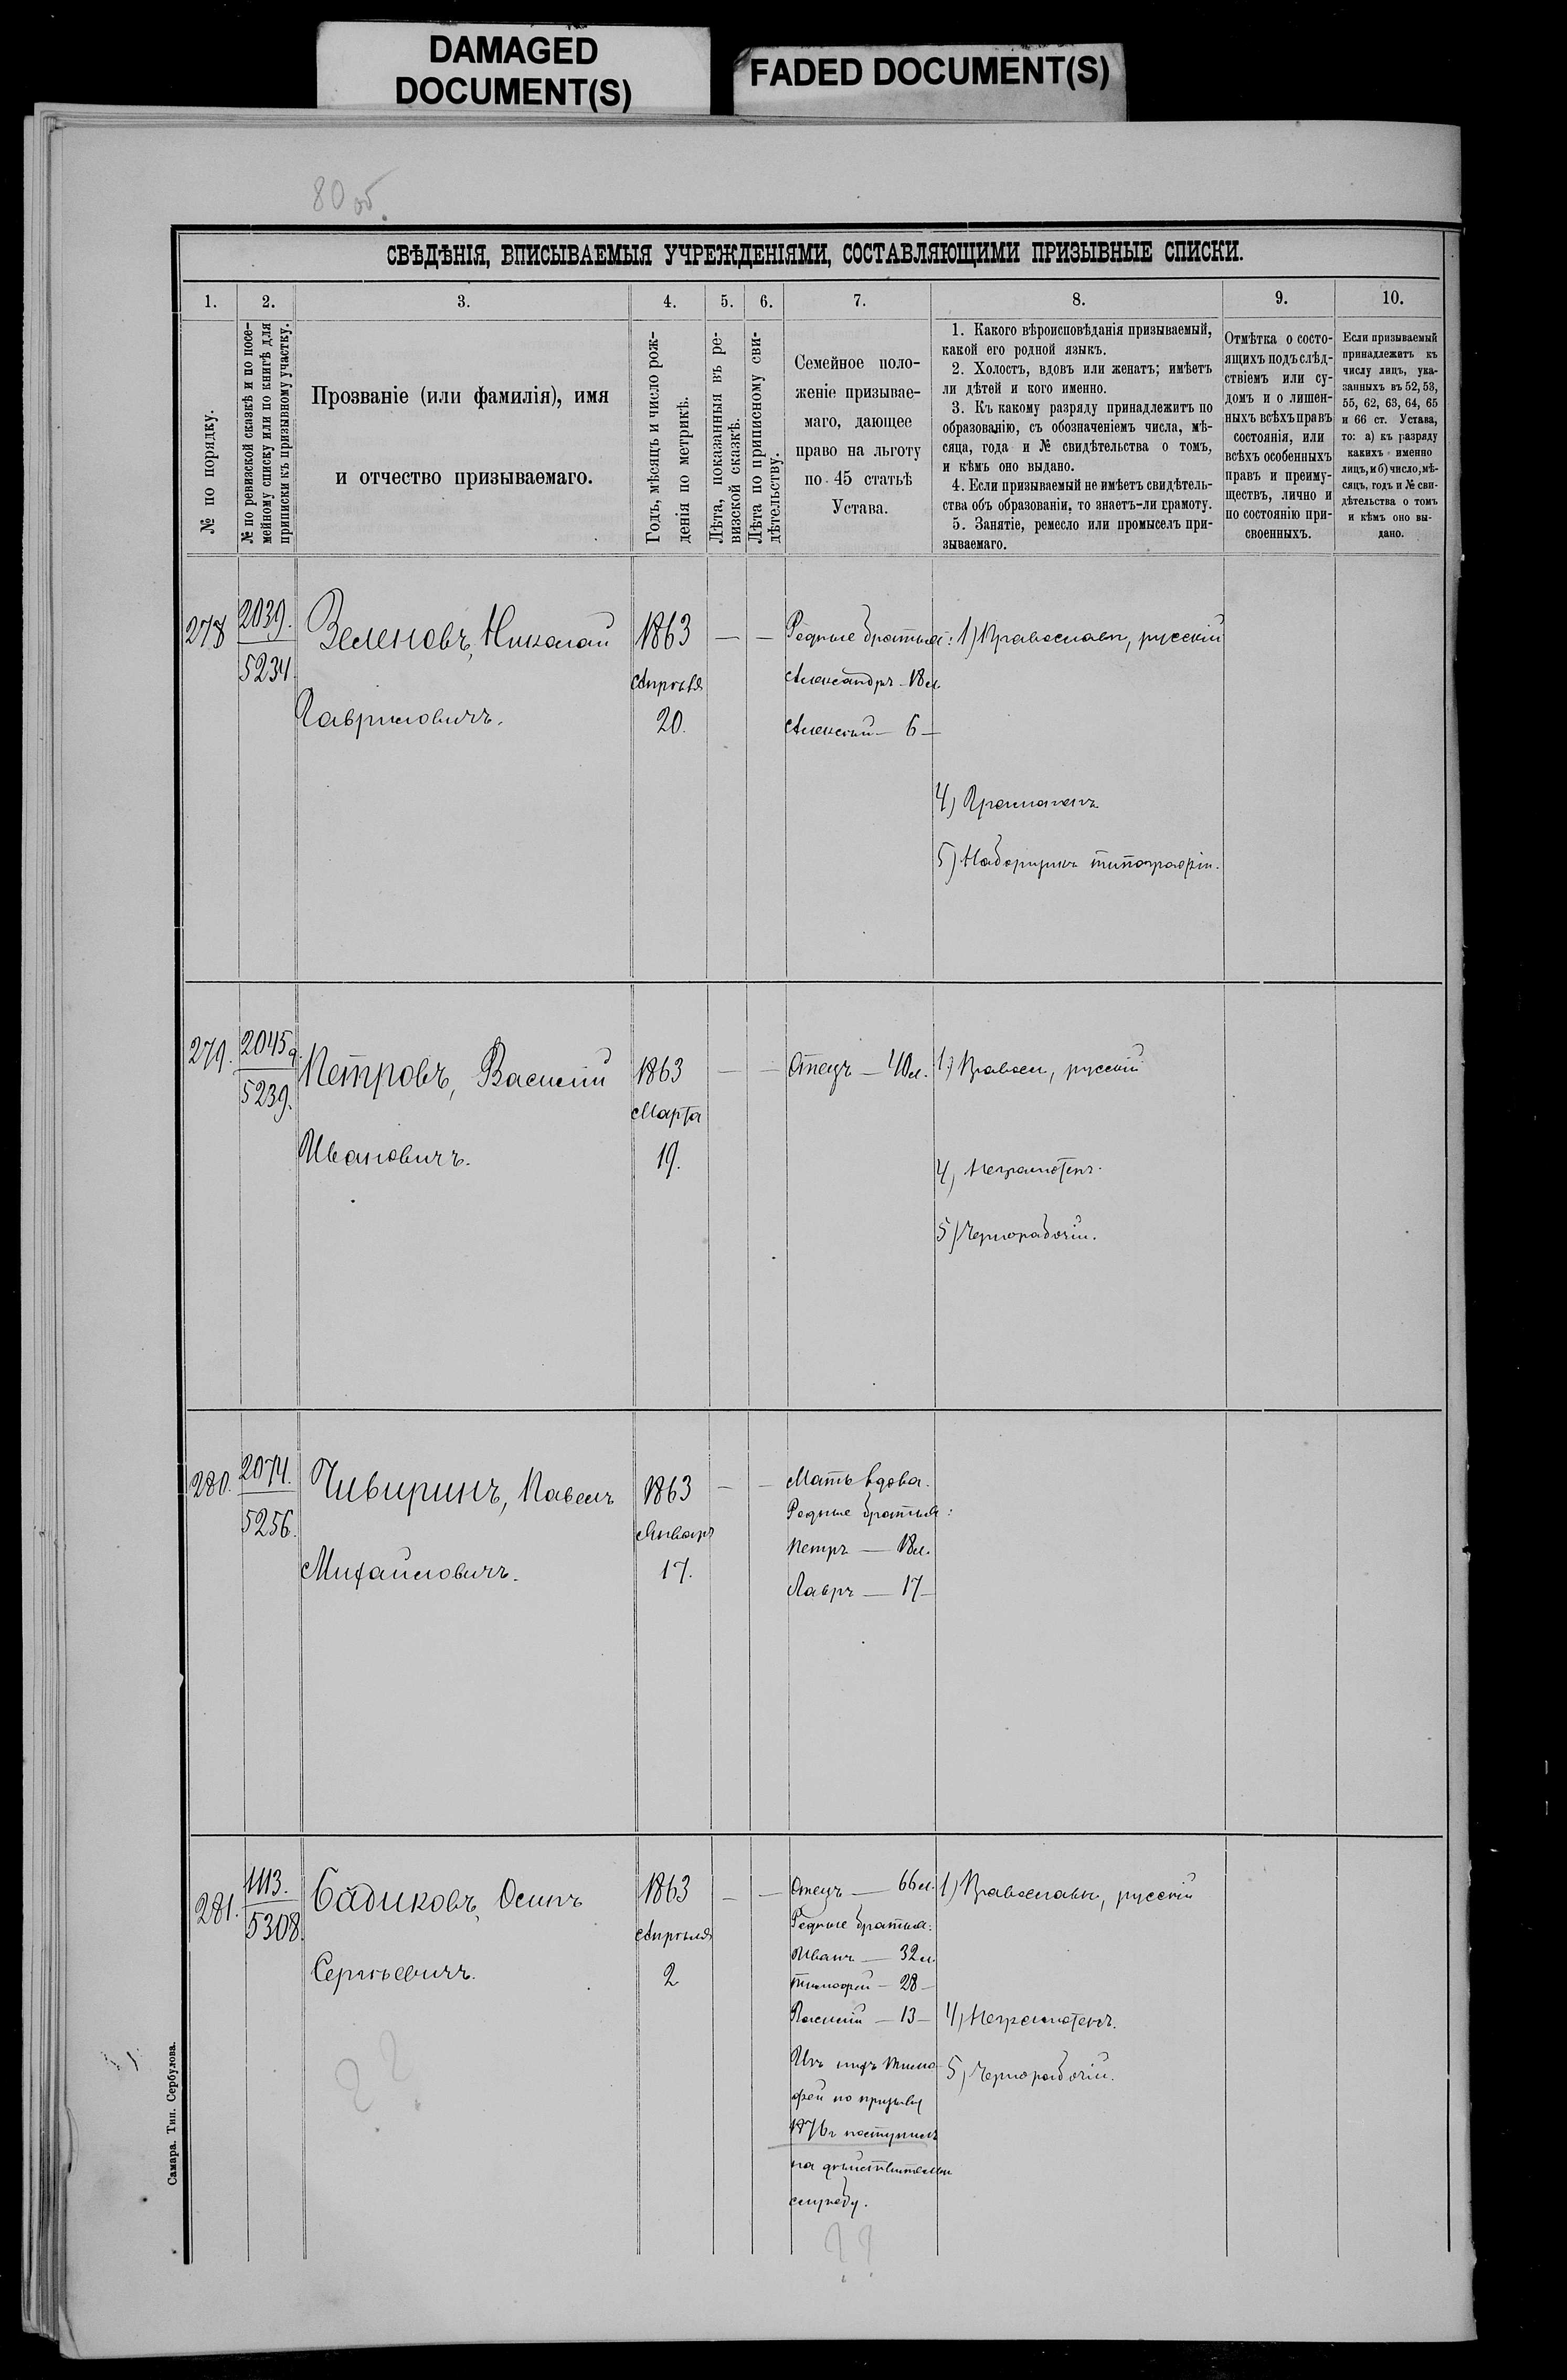 DAMAGED
DOCUMENT(S)
FADED DOCUMENT(S)
80 об.
СВѢДѢНІЯ, ВПИСЫВАЕМЫЯ УЧРЕЖДЕНІЯМИ, СОСТАВЛЯЮЩИМИ ПРИЗЫВНЫЕ СПИСКИ.
1.
2.
3.
4.
5.
6.
7.
8.
9.
10.
№ по порядку.
№ по ревизской сказкѣ и по посе-
мейному списку или по книгѣ для
приписки къ призывному участку.
Прозваніе (или фамилія), имя
и отчество призываемаго.
Годъ, мѣсяцъ и число рож-
денія по метрикѣ.
Лѣта, показанныя въ ре-
визской сказкѣ.
Лѣта по приписному сви-
дѣтельству.
Семейное поло-
женіе призывае-
маго, дающее
право на льготу
по 45 статьѣ
Устава.
1. Какого вѣроисповѣданія призываемый,
какой его родной языкъ.
2. Холостъ, вдовъ или женатъ; имѣетъ
ли дѣтей и кого именно.
3. Къ какому разряду принадлежитъ по
образованію, съ обозначеніемъ числа, мѣ-
сяца, года и № свидѣтельства о томъ,
и кѣмъ оно выдано.
4. Если призываемый не имѣетъ свидѣтель-
ства объ образованіи, то знаетъ-ли грамоту.
5. Занятіе, ремесло или промыселъ при-
зываемаго.
Отмѣтка о состо-
ящихъ подъ слѣд-
ствіемъ или су-
домъ и о лишен-
ныхъ всѣхъ правъ
состоянія, или
всѣхъ особенныхъ
правъ и преиму-
ществъ, лично и
по состоянію при-
своенныхъ.
Если призываемый
принадлежитъ къ
числу лицъ, ука-
занныхъ въ 52, 53,
55, 62, 63, 64, 65
и 66 ст. Устава,
то: а) къ разряду
какихъ именно
лицъ, и б) число, мѣ-
сяцъ, годъ и № сви-
дѣтельства о томъ
и кѣмъ оно вы-
дано.
278
2039.
5234.
Зеленовъ, Николай
Гавриловичъ.
1863
Апрѣля
20.
—
—
Родные братья:
Александръ - 18 л.
Алексѣй — 6 —
1) Православн, русскій
4) Грамотенъ
5) Наборщикъ типографіи.
279.
2045а.
5239.
Петровъ, Василій
Ивановичъ.
1863
Марта
19.
—
—
Отецъ — 40 л.
1) Правосл, русскій
4) Неграмотенъ.
5) Чернорабочій.
280.
2074.
5256.
Чивиринъ, Павелъ
Михайловичъ.
1863
Январ
17.
—
—
Мать вдова.
Родные братья:
Петръ — 18 л.
Лавръ — 17 —
281.
1113.
5308.
Садиковъ, Осипъ
Сергѣевичъ.
1863
Апрѣля
2
—
—
Отецъ — 66 л.
Родные братья:
Иванъ — 32 л.
Тимофей — 28 —
Василій — 13 —
Изъ нихъ Тимо
фей по призыву
1876 г поступилъ
на дѣйствительн
службу.
1) Православн, русскій
4) Неграмотенъ.
5) Чернорабочій.
? ?
? ?
Самара. Тип. Сербулова.